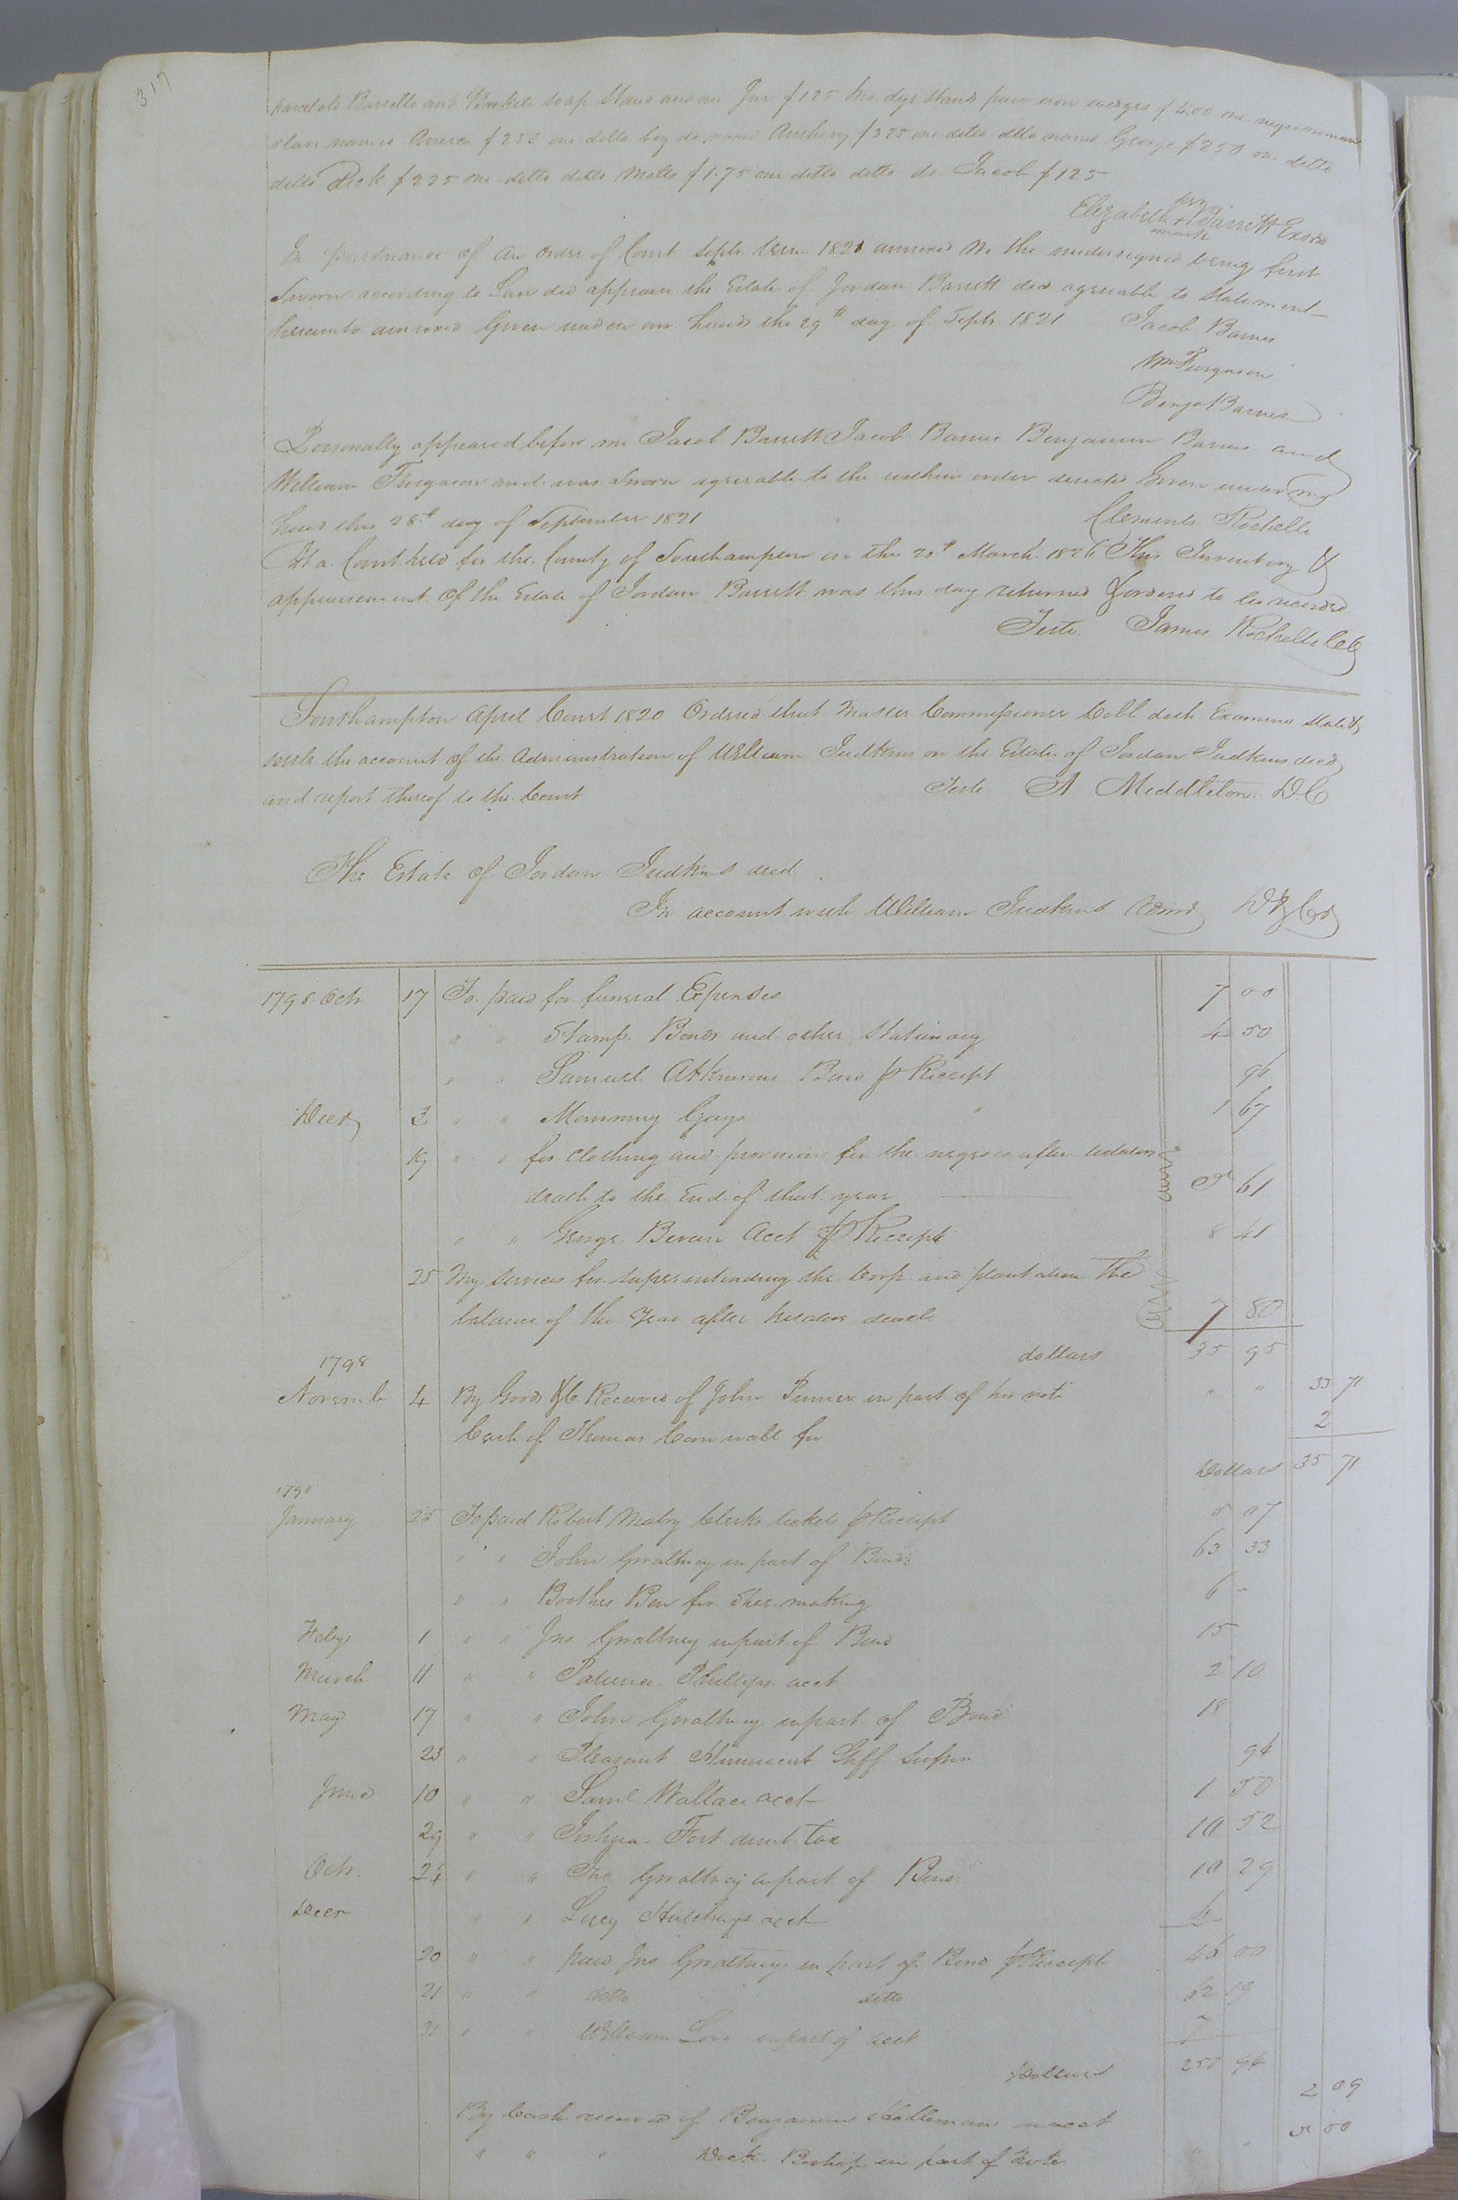 317
parcel old Barrells and Baskets soap Stand and one Jar $1.25 two dye stands four iron wedges $4.00 one negro woman
slave named $250 one ditto boy do named Anthony $325 one ditto ditto named George $250 one ditto
ditto Dick $225 one ditto ditto Moses $175 one ditto ditto do Jacob $125
Elizabeth her + mark Barrett Exorx
In pursuance of an order of Court Septr term 1821 annexed We the undersigned being first
Sworn according to Law did appraise the Estate of Jordan Barrett decd agreeable to statement
hereunto annexed Given under our hands the 29th day of Septr 1821 Jacob Barnes
Wm Furgason
Benja Barnes
Personally appeared before me Jacob Barrett Jacob Barnes Benjamin Barnes and
William Furgason and was Sworn agreeable to the within order directed Given under my
hand this 28th day of September 1821 Clements Rochelle
At a Court held for the County of Southampton on the 20th March 1826 This Inventory &
appraisement of the Estate of Jordan Barrett was this day returned & ordered to be recorded
Teste James Rochelle CC
Southampton April Court 1820 Ordered that Master Commissioner Cobb doth Examine state &
settle the account of the Administration of William Judkins on the Estate of Jordan Judkins decd
and report thereof to the Court Teste A Middleton D.C
The Estate of Jordan Judkins decd
In account with William Judkins Admr Dr & Cr
1798 Octr 17 To paid for funeral Expenses 7 00
" " Stamp Bond and other stationary 4 50
" " Samuel Atkinsons Bond pr Receipt 96
Decr 3 " " Mourning Gays 1 67
19 " " for Clothing and provision for the negroes after
death to the End of that year 5 61
" " George Bevan Acct pr Receipt 8 41
25 My services for superintending the Crop and plantation the
balance of the year after death 7 80
dollars 35 95
1798
November 4 By Goods &c Received of John in part of his note " " 33 71
Cash of Thomas Cornwall for 2
Dollars 35 71
January 25 To paid Robert Mabry Clerks tickets pr Receipt 5 07
" " John Gwaltney in part of Bond 63 33
" " Boothes Ben for Shoe making 6 -
Feby 1 " " Jno Gwaltney in part of Bond 15
March 11 " " Patience Phillips acct 2 10
May 17 " " John Gwaltney in part of Bond 18
23 " " Pleasant Hunnicut 94
June 10 " " Saml Wallace acct 1 50
29 " " Joshua Fort tax 10 52
Octr 24 " " Jno Gwaltney in part of Bond 10 29
Decr " " Lucy acct 4
20 " " paid Jno Gwaltney in part of Bond pr Receipt 46 00
21 " " ditto ditto 62 19
31 " " William in part of acct 7
Dollars 251 94
By Cash received of Benjamin Holleman acct 2 09
" " " Dick Bishop in part of Note " " 5 00